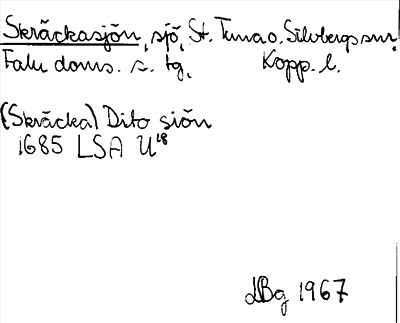 Skräckasjön, sjö, St. Tuna o. Silvbergs snr.
Falu doms. s. tg, Kopp. l.
(Skräcka) Dito siön
1685 LSA U¹⁸
LBg 1967